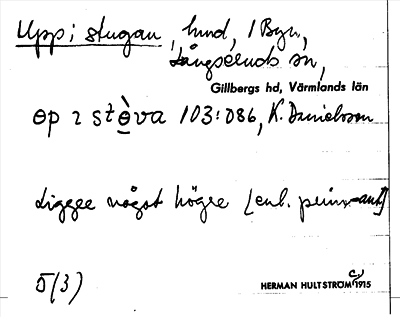 Uppi stugan, hund, 1 Byn,
Långseruds sn,
Gillbergs hd, Värmlands län
op i stèva 103:086, K. Danielsson
Ligger något högre [enl. prim-ant]
5(3)
HERMAN HULTSTRÖM c) 1915